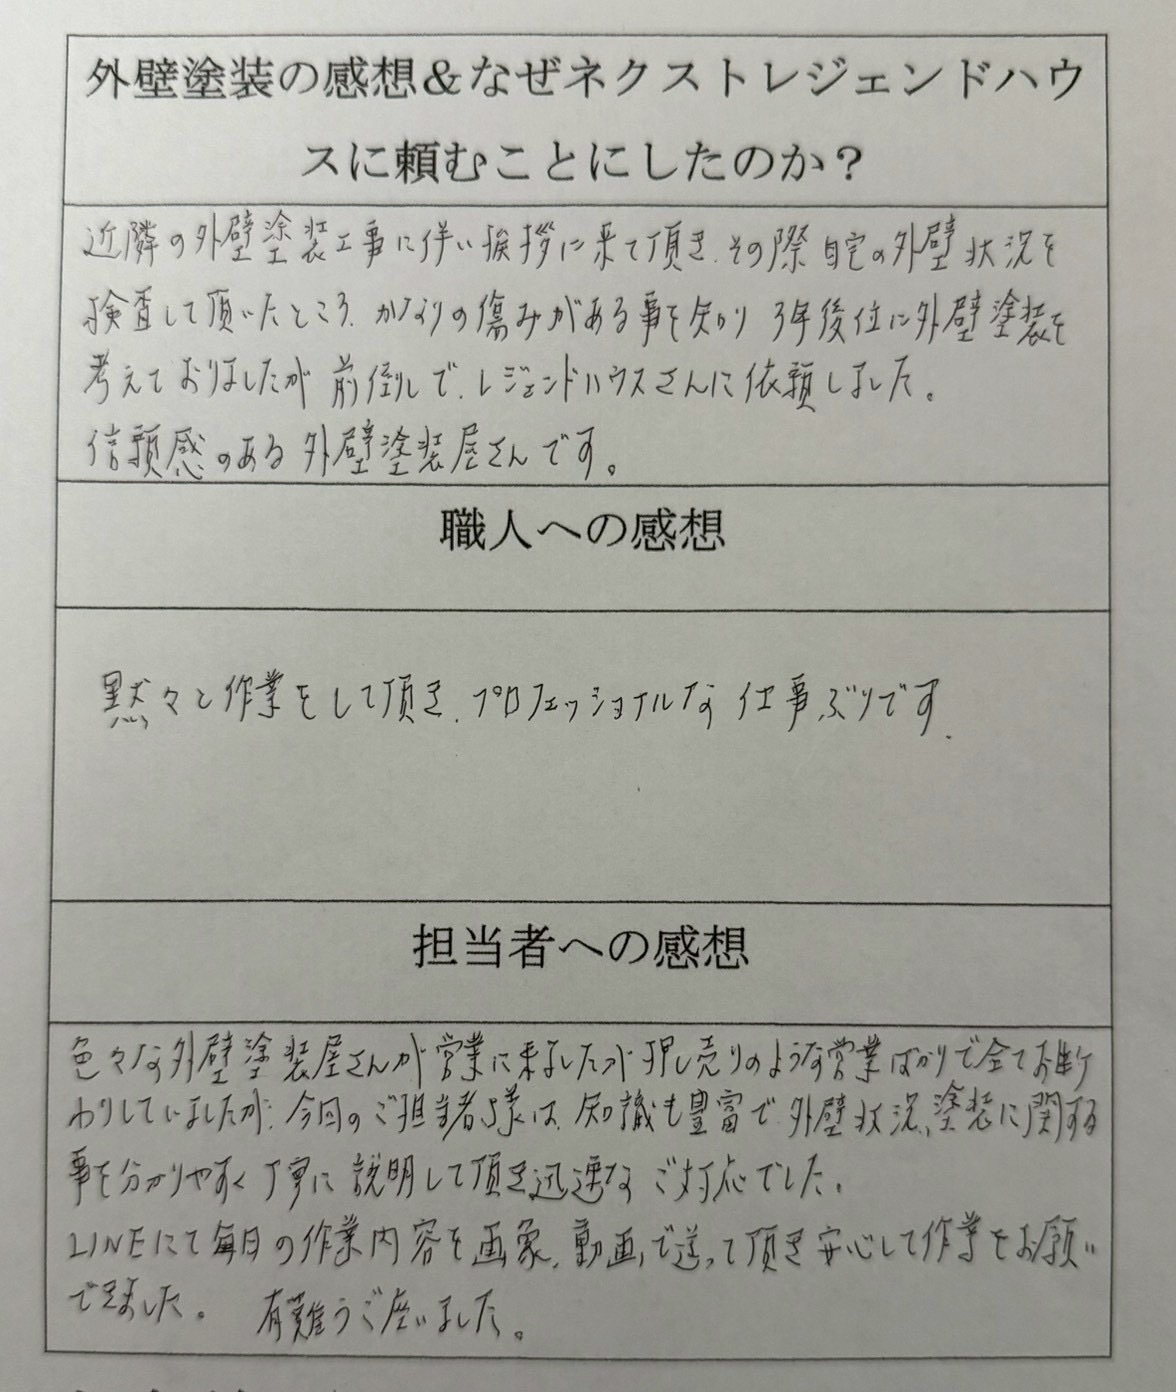 外壁塗装の感想＆なぜネクストレジェンドハウ
スに頼むことにしたのか？
近隣の外壁塗装工事に伴い挨拶に来て頂き、その際自宅の外壁状況を
検査して頂いたところ、かなりの傷みがある事を知り 3年後位に外壁塗装を
考えておりましたが 前倒しで、レジェンドハウスさんに依頼しました。
信頼感のある外壁塗装屋さんです。
職人への感想
黙々と作業をして頂き、プロフェッショナルな仕事ぶりです.
担当者への感想
色々な外壁塗装屋さんが営業に来ましたが押し売りのような営業ばかりで全てお断
わりしていましたが、今回のご担当者様は、知識も豊富で、外壁状況、塗装に関する
事を分かりやすく丁寧に説明して頂き迅速なご対応でした。
LINEにて毎日の作業内容を画象、動画で送って頂き安心して作業をお願い
できました。 有難うご座いました。